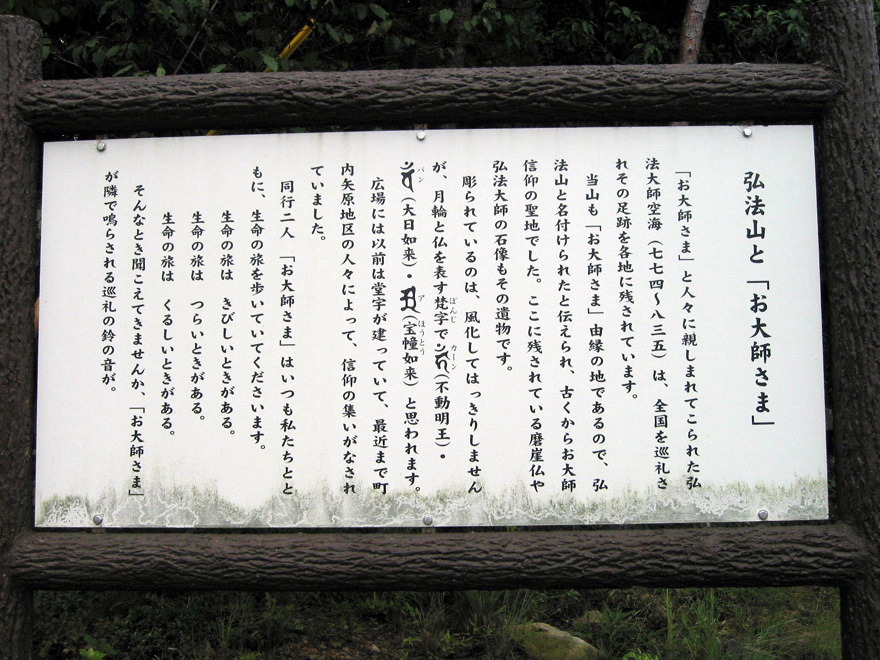 弘法山と「お大師さま」
「お大師さま」と人々に親しまれてこられた弘
法大師空海（七七四～八三五）は、全国を巡礼さ
れその足跡を各地に残されています。
当山も「お大師さま」由縁の地であるので、弘
法山と名付けられたと伝えられ、古くからお大師
信仰の聖地でした。ここに残されている磨崖仏や
弘法大師の石像もその遺物です。
彫られているのは、風化してはっきりしません
が、月輪と仏を表す梵字で（不動明王）・
（大日如来）・（宝幢如来）と思われます。
広場には以前は堂宇が建っていて、最近まで町
内矢原地区の人々によって、信仰の集いがなされ
ていました。
同行二人　「お大師さま」はいつも私たちとと
もに、生命の旅を歩いていてくださいます。
生命の旅は　きびしいときがある。
生命の旅は　つらいときがある。
生命の旅は　くるしいときがある。
そんなとき聞こえてきませんか、「お大師さま」
が隣で鳴らされる巡礼の鈴の音が。